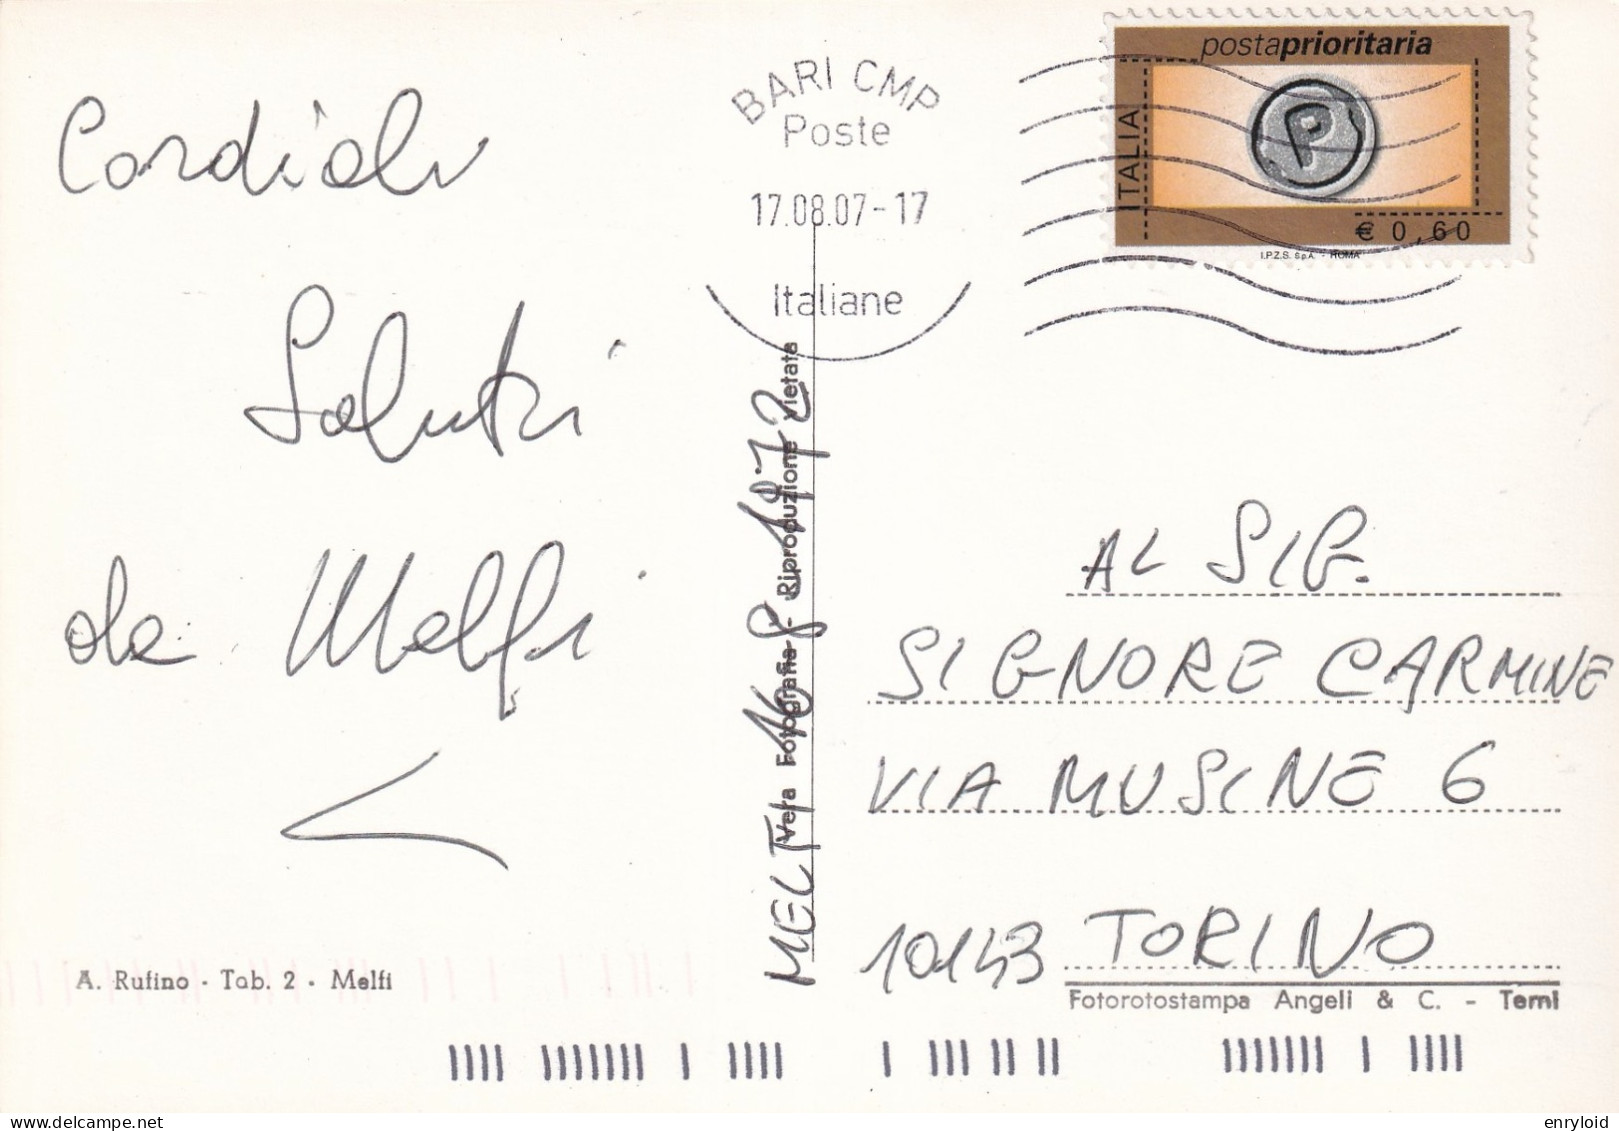 Cordiali
Saluti
da Melfi
A. Rufino - Tab. 2 - Melfi
BARI CMP
Poste
17.08.07-17
Italiane
postaprioritaria
ITALIA
P
€ 0,60
I.P.Z.S. S.p.A. - ROMA
Vera Fotografia - Riproduzione vietata
MELFI 16 8 1972
AL SIG.
SIGNORE CARMINE
VIA MUSINE 6
10143 TORINO
Fotorotostampa Angeli & C. - Terni
enryloid